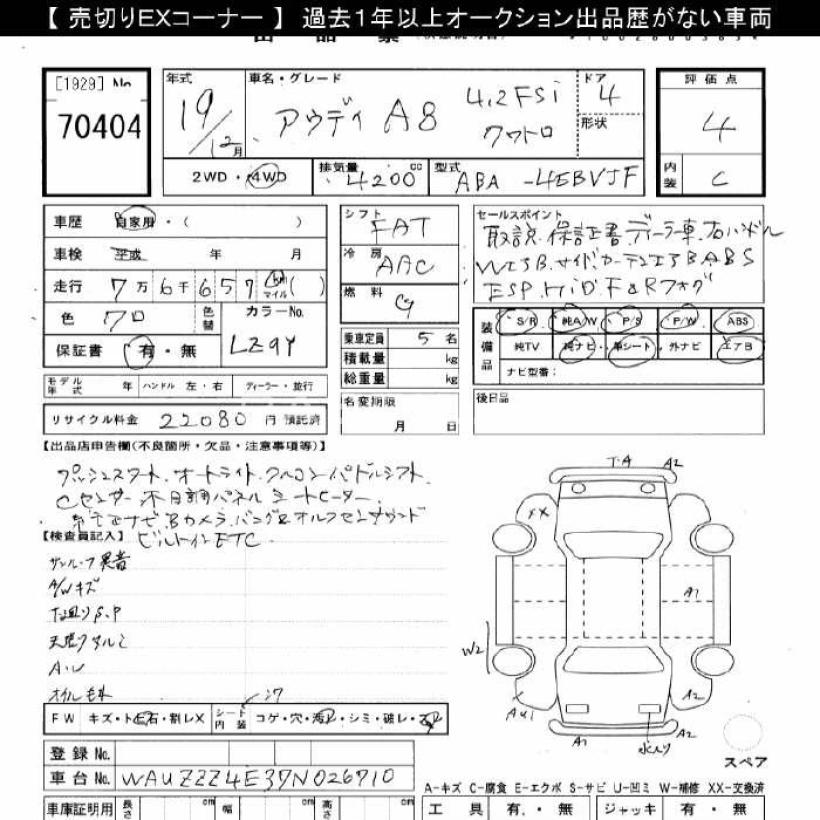 【 売切りEXコーナー 】 過去1年以上オークション出品歴がない車両
[1929] No
70404
年式
19/12月
車名・グレード
アウディ A8 4.2FSi
クワトロ
ドア
4
形状
評価点
4
内装
C
2WD・4WD
排気量 4200 cc
型式 ABA-4EBVJF
車歴 自家用・( )
車検 平成 年 月
走行 7万6千657 km マイル ( )
色 クロ
色替
カラーNo.
LZ9Y
保証書 有・無
シフト FAT
冷房 AAC
燃料 G
乗車定員 5 名
積載量 kg
総重量 kg
セールスポイント
取説.保証書.ディーラー車.右ハンドル
WエアB.サイド.カーテンエアB ABS
ESP.HiD F&Rフォグ
装備品
S/R 純A/W P/S P/W ABS
純TV 純ナビ 革シート 外ナビ エアB
ナビ型番：
モデル年式 年 ハンドル 左・右 ディーラー・並行
リサイクル料金 22080 円 預託済
名変期限
月 日
後日品
【出品店申告欄(不良箇所・欠品・注意事項等)】
プッシュスタート.オートライト.クルコン.パドルシフト.
Cセンサー 木目調パネル シートヒーター.
Bカメラ.バング&オルフセンサウンド
ビルトインETC.
【検査員記入】
サンルーフ異音
A/Wキズ
下廻りS.P
天張りシミ
A・U
オイルモレ
FW キズ・ト石・割レX
シート内装 コゲ・穴・シミ・破レ・スレ
シワ
T-A A2
XX
A1
W2
X
AU1
A2
A1
A2
水入り
スペア
登録 No.
車台 No. WAUZZZ4E37N026710
車庫証明用 長さ cm 幅 cm 高さ cm
A-キズ C-腐食 E-エクボ S-サビ U-凹ミ W-補修 XX-交換済
工具 有・無 ジャッキ 有・無